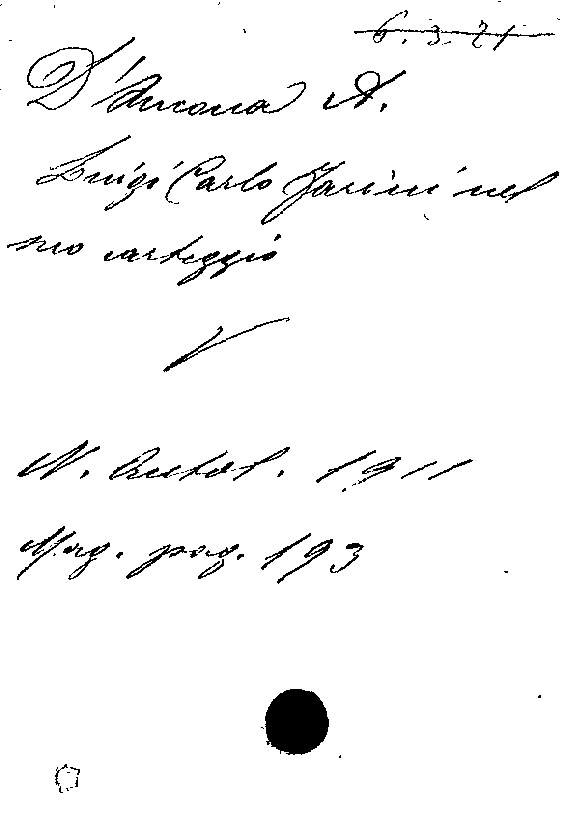 6.3.71
D'Ancona A.
Luigi Carlo Farini nel
suo carteggio
N. Antol. 1911
Mag. pag. 193